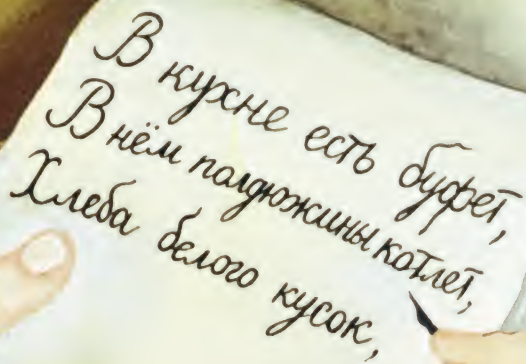 В кухне есть буфет,
В нём полдюжины котлет,
Хлеба белого кусок,